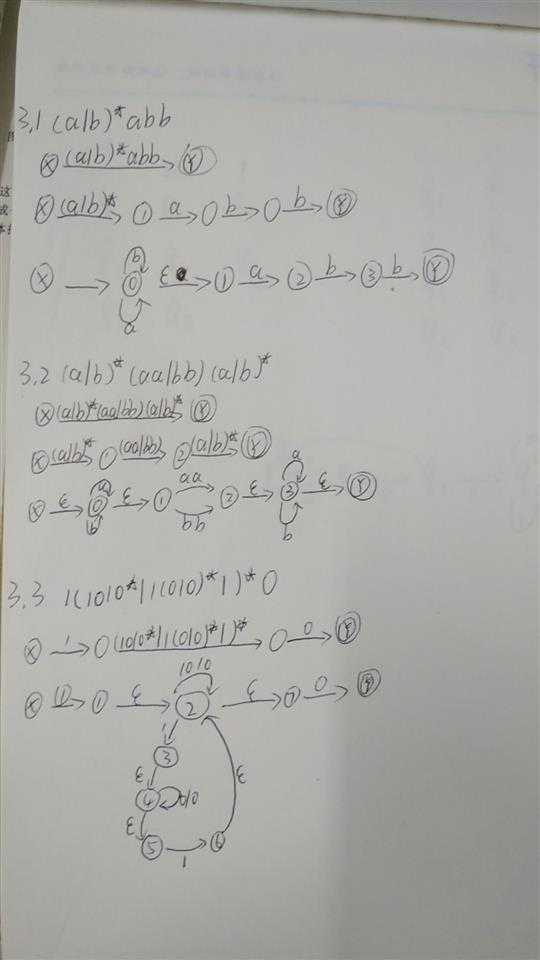 3.1 (a|b)*abb
X (a|b)*abb Y
X (a|b)* 1 a b b Y
X b 0 a ε 1 a 2 b 3 b Y
3.2 (a|b)*(aa|bb)(a|b)*
X (a|b)*(aa|bb)(a|b)* Y
X (a|b)* 1 (aa|bb) 2 (a|b)* Y
X ε a 0 b ε 1 aa bb 2 ε a 3 b ε Y
3.3 1(1010*|1(010)*1)*0
X 1 (1010*|1(010)*1)* 0 Y
X 1 ε 1010 2 ε 7 0 Y
1
3
ε
4 010 ε
ε
5 1 6